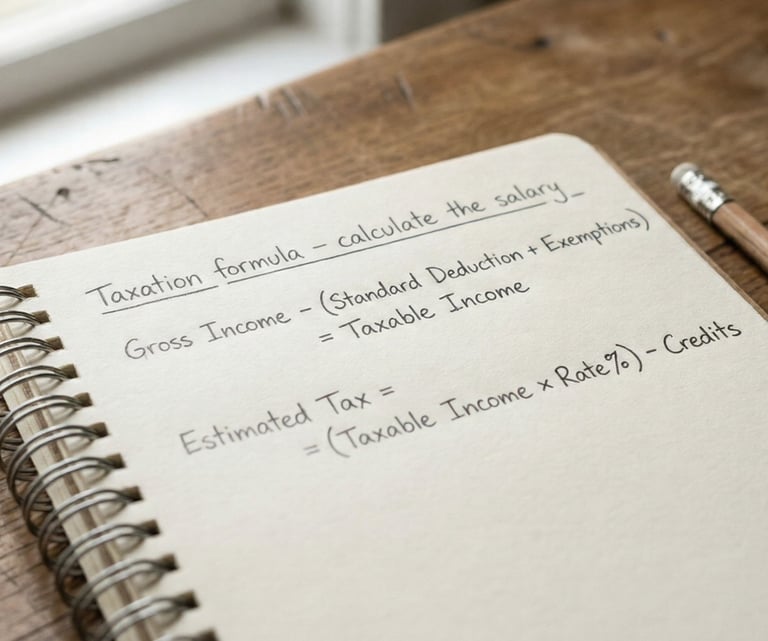 Taxation formula - calculate the salary_
Gross Income - (Standard Deduction + Exemptions)
= Taxable Income
Estimated Tax =
= (Taxable Income x Rate%) - Credits